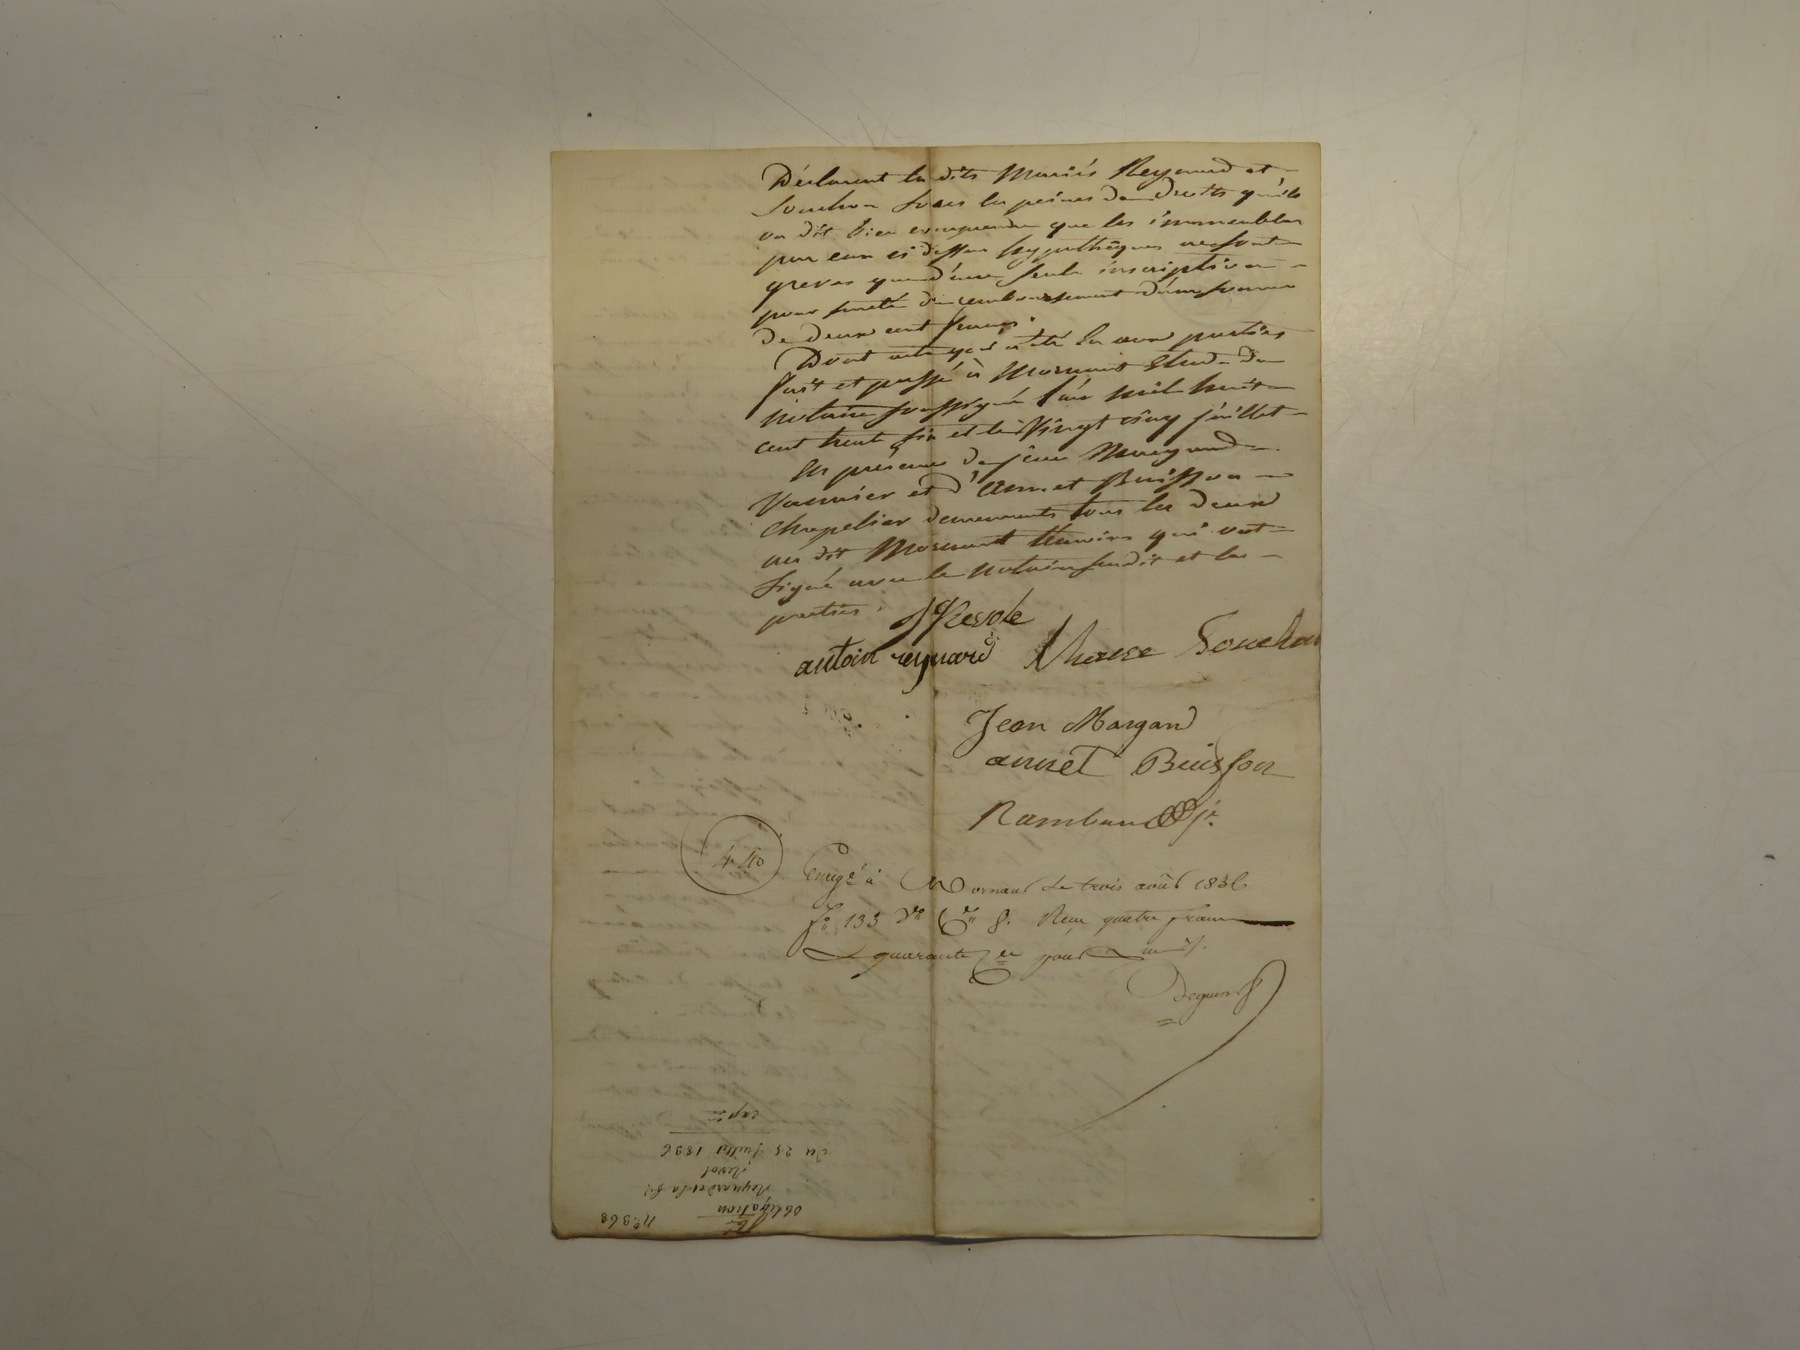 Déclarent les dits Mariés Reynard et
Souchon sous les peines de droits qu'ils
on dit bien comprendre que les immeubles
par eux ci dessus hypothéqués ne sont
grevés que d'une seule inscription
pour sureté du remboursement d'une somme
de deux cent francs.
Dont acte qui a été lu aux parties
fait et passé à Mornant Etude du
Notaire soussigné l'an mil huit
cent trente six et le Vingt cinq juillet
En présence de Jean Margand
Vannier et d'Annet Buisson
Chapelier demeurants tous les deux
au dit Mornant temoins qui ont
signé avec le notaire susdit et les
parties.
Revole
antoin reynard Therese Souchon
Jean Margand
annet Buisson
Rambaud je.
4.40
Enregé à Mornant le trois août 1836
fo 133 Vo Ce 8. Reçu quatre francs
quarante ces pour
No. 368
obligation
Reynard et sa fe
Revol
Du 25 Juillet 1836
expée